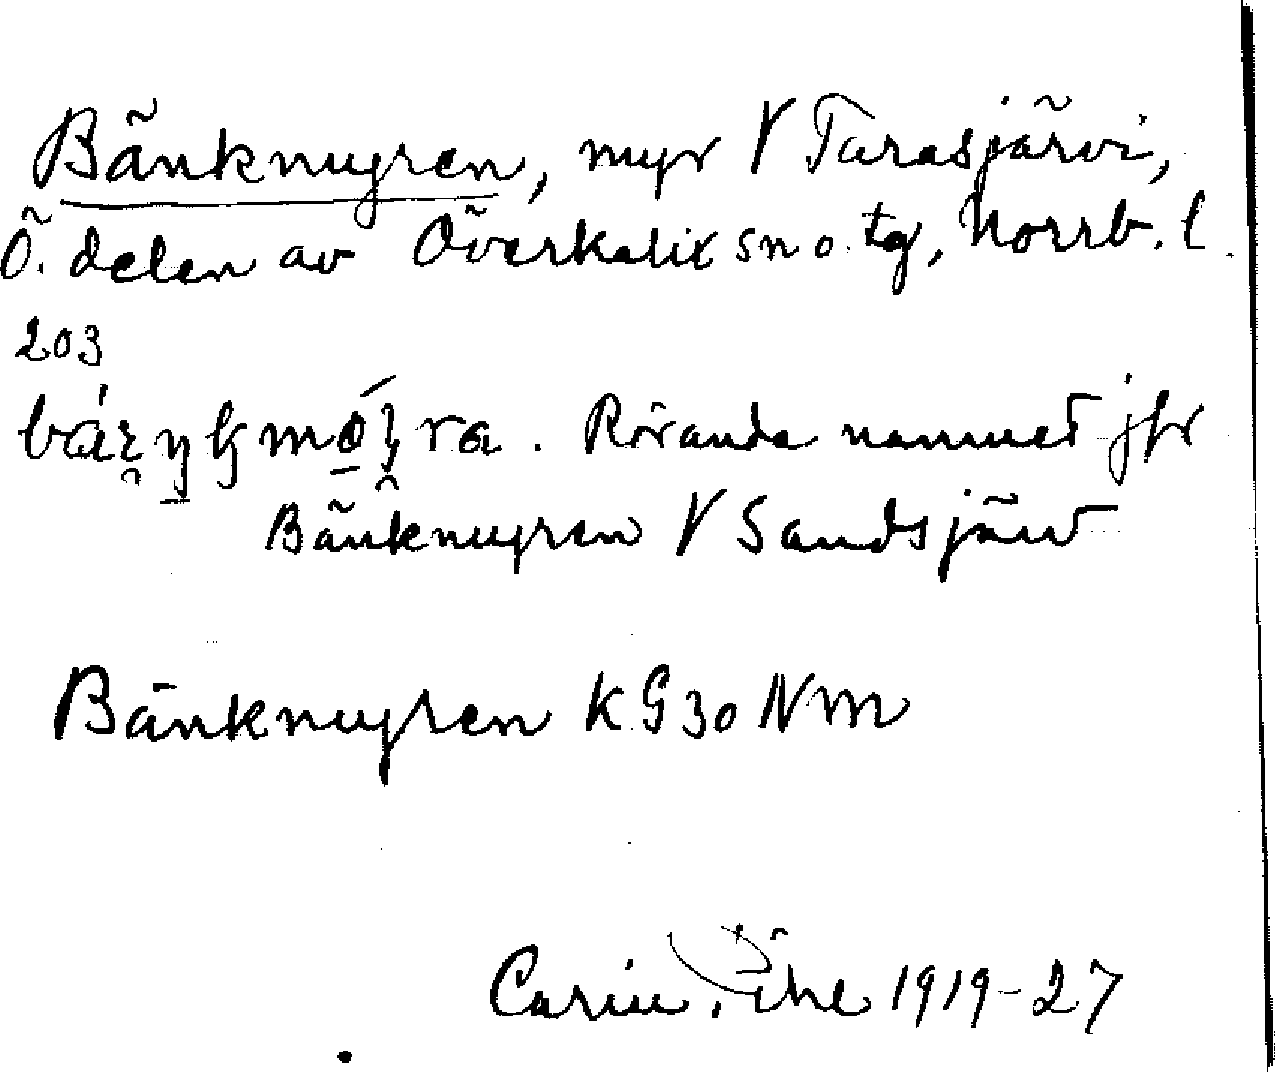 Bänkmyren, myr V Tarasjärvi,
Ö. delen av Överkalix sn o. tg, Norrb. l.
203
. Rörande namnet jfr
Bänkmyren V Sandsjärv
Bänkmyren K G 30 NM
Carin 1919-27